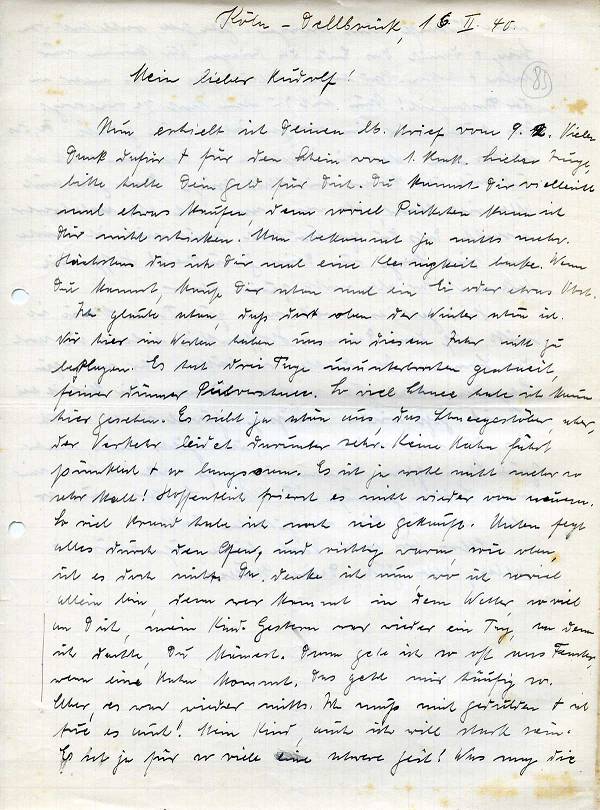 Köln - Dellbrück, 16. II. 40.
85
Mein lieber Rudolf!
Nun erhielt ich Deinen lb. Brief vom 9. 2. Vielen
Dank dafür + für den Schein von 1. Lieber Junge,
bitte halte Dein Geld für Dich. Du kannst Dir vielleicht
mal etwas kaufen, denn soviel Päckchen kann ich
Dir nicht schicken. Man bekommt ja nichts mehr.
Höchstens das ich Dir mal eine Kleinigkeit backe. Wenn
Du kannst, kaufe Dir schon mal ein Ei oder etwas Obst.
Ich glaube schon, daß dort oben der Winter schön ist.
Wir hier im Westen haben uns in diesem Jahr nicht zu
beklagen. Es hat drei Tage ununterbrochen geschneit,
feiner dünner Pulverschnee. So viel Schnee habe ich kaum
hier gesehen. Es sieht ja schön aus, das Schneegestöber, aber,
der Verkehr leidet darunter sehr. Keine Bahn fährt
pünktlich + so langsam. Es ist ja wohl nicht mehr so
sehr kalt! Hoffentlich friert es nicht wieder von neuem.
So viel Brand habe ich noch nie gekauft. Unten fegt
alles durch den Ofen, und richtig warm, wie oben,
ist es doch nicht. Da denke ich nun wo ich soviel
allein bin, denn wer kommt in dem Wetter, so viel
an Dich, mein Kind. Gestern war wieder ein Tag, an dem
ich dachte, Du kämest. Dann gehe ich so oft ans Fenster,
wenn eine Bahn kommt. Das geht mir häufig so.
Aber, es war wieder nichts. Ich muß mich gedulden + ich
tue es auch! Mein Kind, auch ich will stark sein.
Es ist ja für so viele eine schwere Zeit! Was mag die